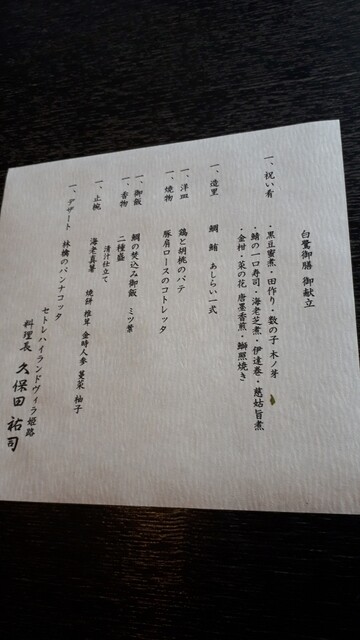 白鷺御膳 御献立
一、祝い肴
・黒豆蜜煮・田作り・数の子 木ノ芽
・鯖の一口寿司・海老芝煮・伊達巻・慈姑旨煮
・金柑・菜の花 唐墨香煎・鰤照焼き
一、造里 鯛 鮪 あしらい一式
一、洋皿 鶏と胡桃のパテ
一、焼物 豚肩ロースのコトレッタ
一、御飯 鯛の炊込み御飯 ミツ葉
一、香物 二種盛
一、止椀 清汁仕立て
海老真薯 焼餅 椎茸 金時人参 蔓菜 柚子
一、デザート 林檎のパンナコッタ
セトレハイランドヴィラ姫路
料理長 久保田 祐司